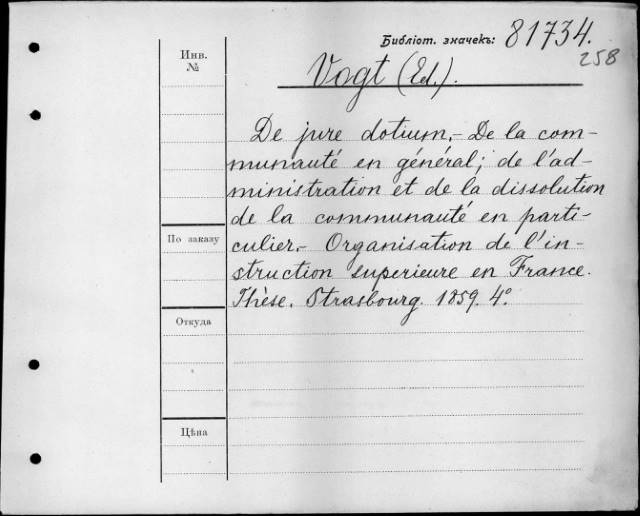 Библіот. значекъ: 81734.
258
Инв.
№
Vogt (Ed.).
De jure dotium.- De la com-
munauté en général; de l'ad-
ministration et de la dissolution
de la communauté en parti-
culier.- Organisation de l'in-
struction superieure en France.
Thèse. Strasbourg. 1859. 4°.
По заказу
Откуда
Цѣна